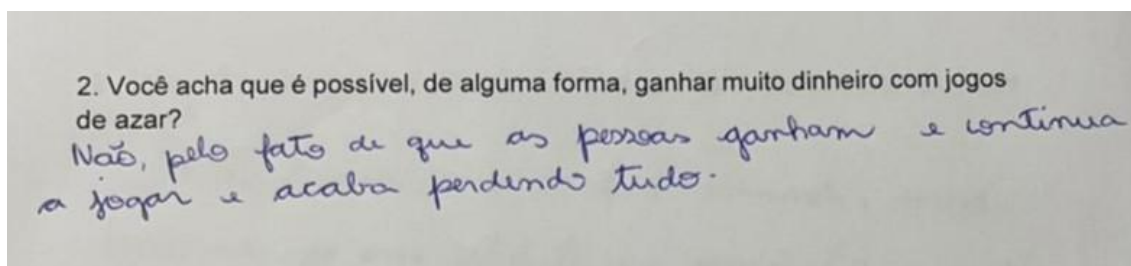 2. Você acha que é possível, de alguma forma, ganhar muito dinheiro com jogos
de azar?
Não, pelo fato de que as pessoas ganham e continua
a jogar e acaba perdendo tudo.